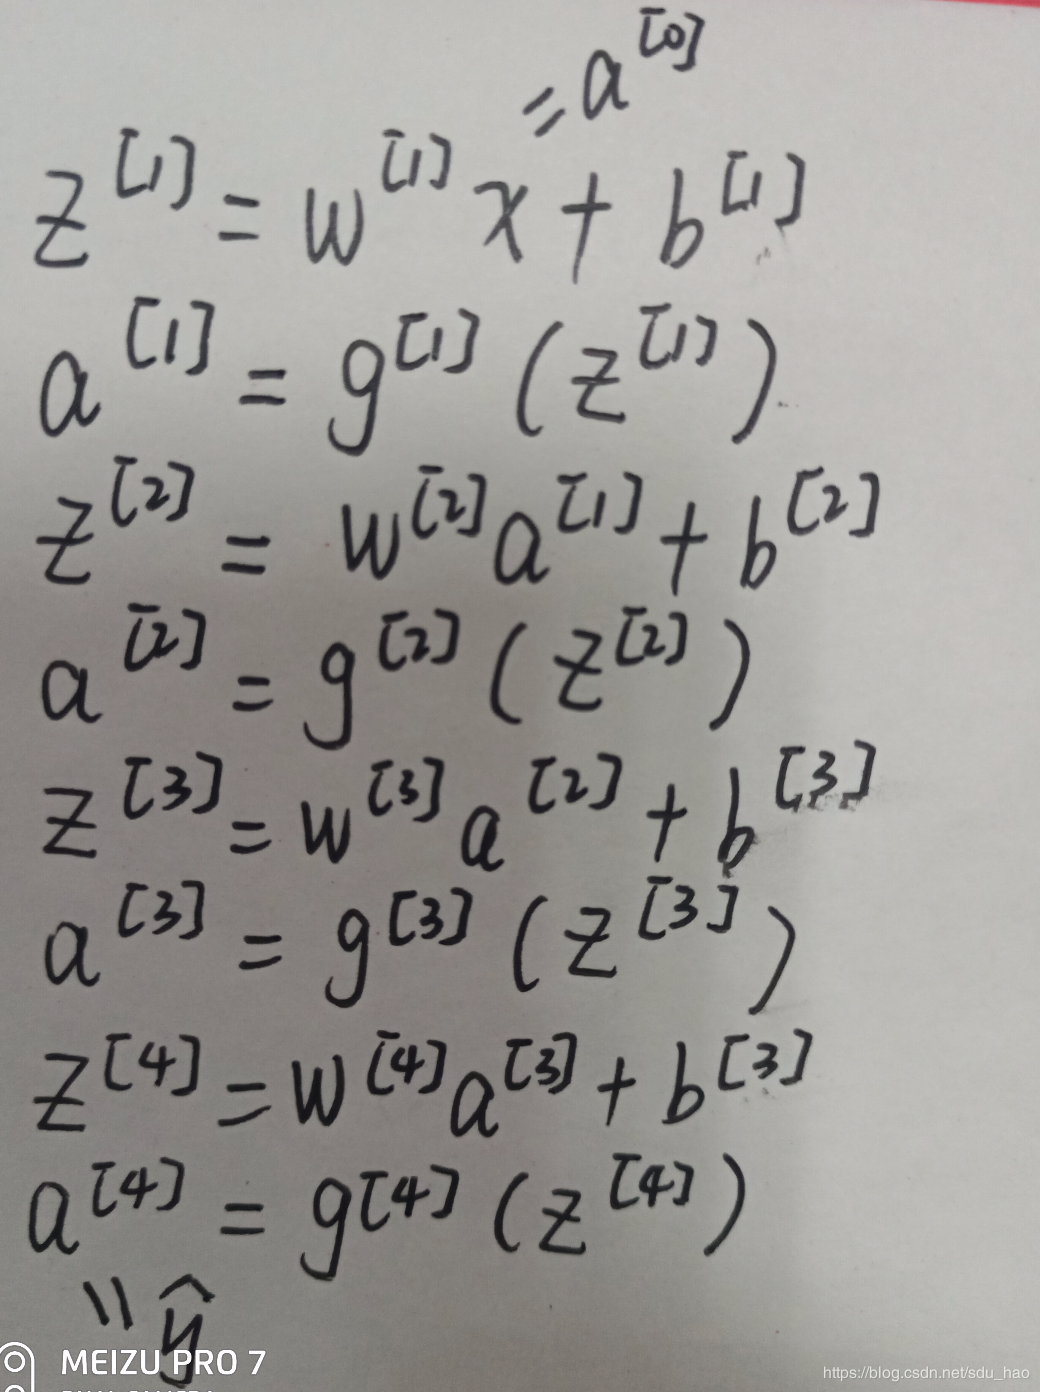 = a^[0]
z^[1] = w^[1] x + b^[1]
a^[1] = g^[1] (z^[1])
z^[2] = w^[2] a^[1] + b^[2]
a^[2] = g^[2] (z^[2])
z^[3] = w^[3] a^[2] + b^[3]
a^[3] = g^[3] (z^[3])
z^[4] = w^[4] a^[3] + b^[3]
a^[4] = g^[4] (z^[4])
= ŷ
MEIZU PRO 7
https://blog.csdn.net/sdu_hao